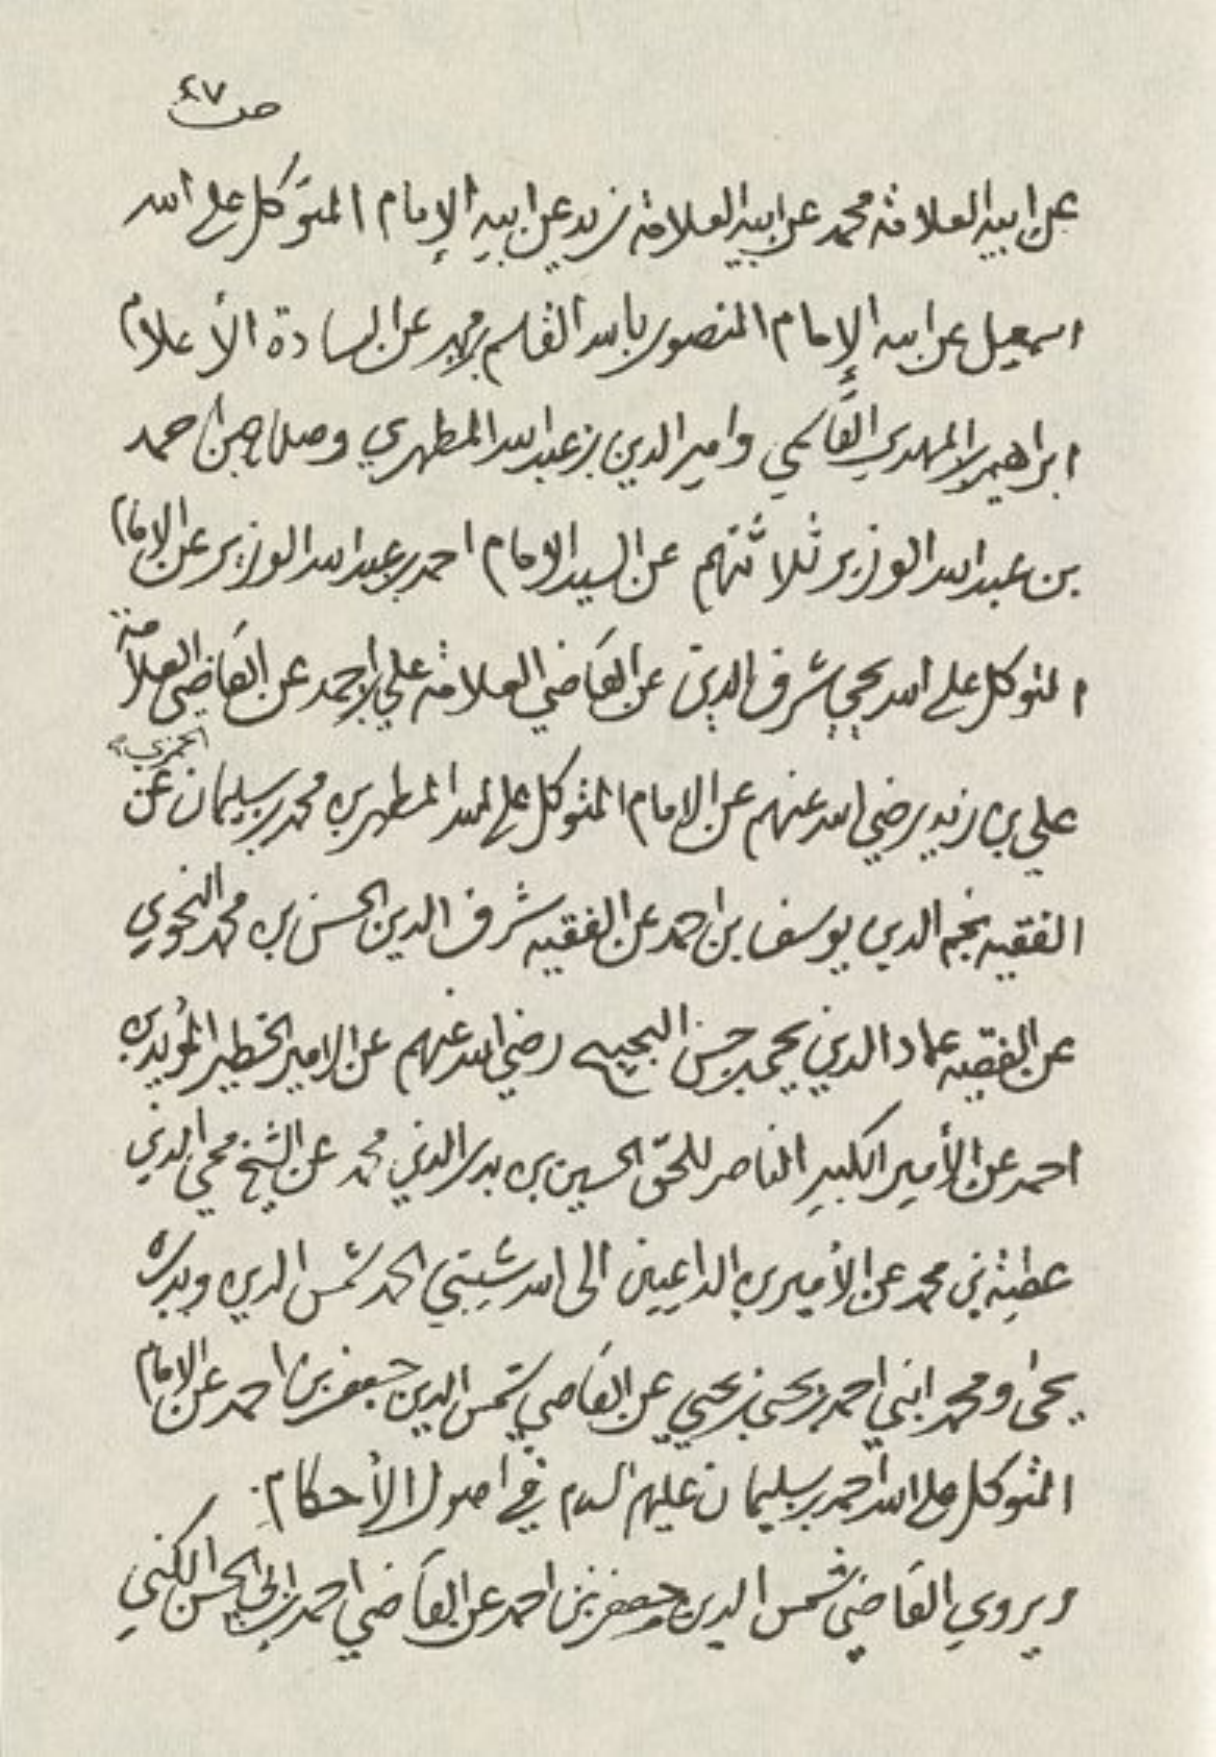 ص٤٧
عن ابيه العلامة محمد عن ابيه العلامة زيد عن ابيه الإمام المتوكل على الله
اسمعيل عن ابيه الإمام المنصور بالله القاسم بن محمد عن السادة الأعلام
ابراهيم بن المهدي القاسمي وامير الدين بن عبد الله المطهري وصلاح بن احمد
بن عبد الله الوزير ثلاثتهم عن السيد الامام احمد بن عبد الله الوزير عن الامام
المتوكل على الله يحيى شرف الدين عن القاضي العلامة علي بن احمد عن القاضي العلامة
علي بن زيد رضي الله عنهم عن الامام المتوكل على الله المطهر بن محمد بن سليمان الحمزي عن
الفقيه نجم الدين يوسف بن احمد عن الفقيه شرف الدين الحسن بن محمد النحوي
عن الفقيه عماد الدين يحيى بن حسن البحيبح رضي الله عنهم عن الامير الخطير المؤيد بن
احمد عن الأمير الكبير الناصر للحق الحسين بن بدر الدين محمد عن الشيخ محي الدين
عطية بن محمد عن الأميرين الداعيين الى الله شيبتي الحمد شمس الدين وبدره
يحيى ومحمد ابني احمد بن يحيى بن يحيى عن القاضي شمس الدين جعفر بن احمد عن الامام
المتوكل على الله احمد بن سليمان عليهم السلام في اصول الأحكام.
ويروي القاضي شمس الدين جعفر بن احمد عن القاضي احمد بن ابي الحسن الكني